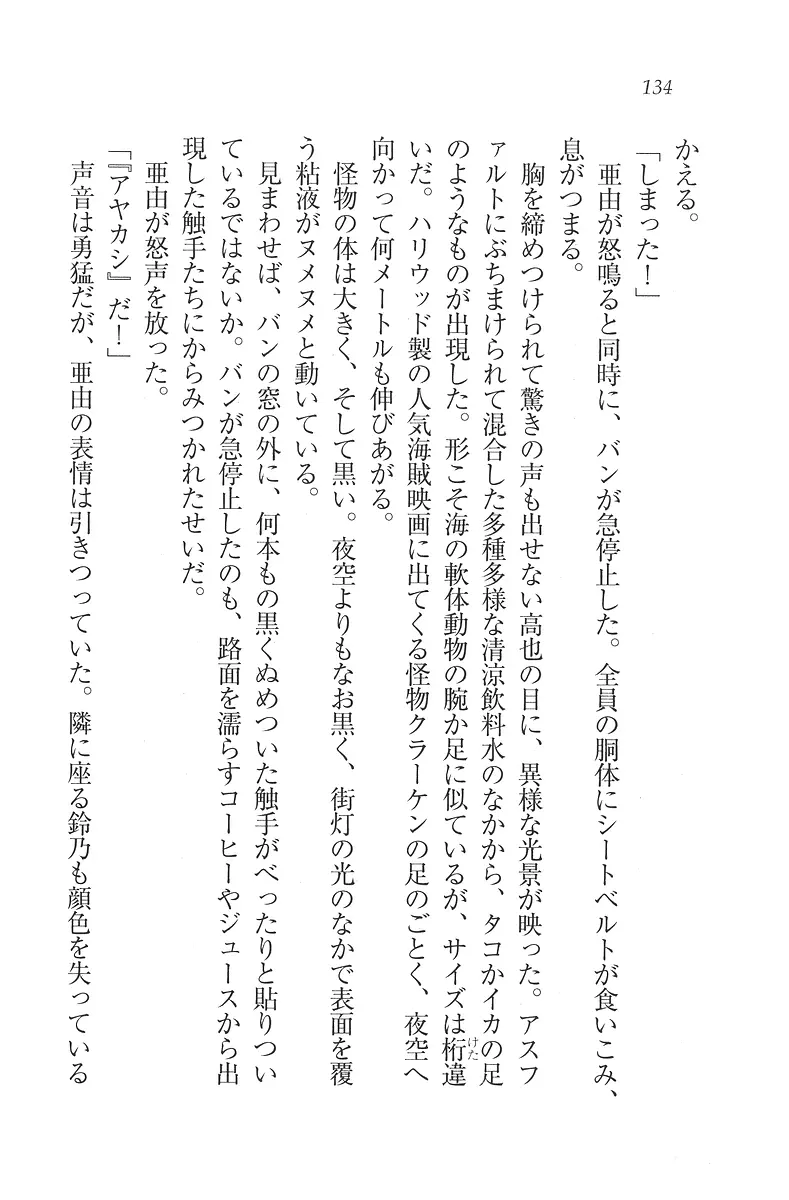 134
かえる。
「しまった！」
亜由が怒鳴ると同時に、バンが急停止した。全員の胴体にシートベルトが食いこみ、
息がつまる。
胸を締めつけられて驚きの声も出せない高也の目に、異様な光景が映った。アスフ
ァルトにぶちまけられて混合した多種多様な清涼飲料水のなかから、タコかイカの足
のようなものが出現した。形こそ海の軟体動物の腕か足に似ているが、サイズは桁違
けた
いだ。ハリウッド製の人気海賊映画に出てくる怪物クラーケンの足のごとく、夜空へ
向かって何メートルも伸びあがる。
怪物の体は大きく、そして黒い。夜空よりもなお黒く、街灯の光のなかで表面を覆
う粘液がヌメヌメと動いている。
見まわせば、バンの窓の外に、何本もの黒くぬめついた触手がべったりと貼りつい
ているではないか。バンが急停止したのも、路面を濡らすコーヒーやジュースから出
現した触手たちにからみつかれたせいだ。
亜由が怒声を放った。
「『アヤカシ』だ！」
声音は勇猛だが、亜由の表情は引きつっていた。隣に座る鈴乃も顔色を失っている